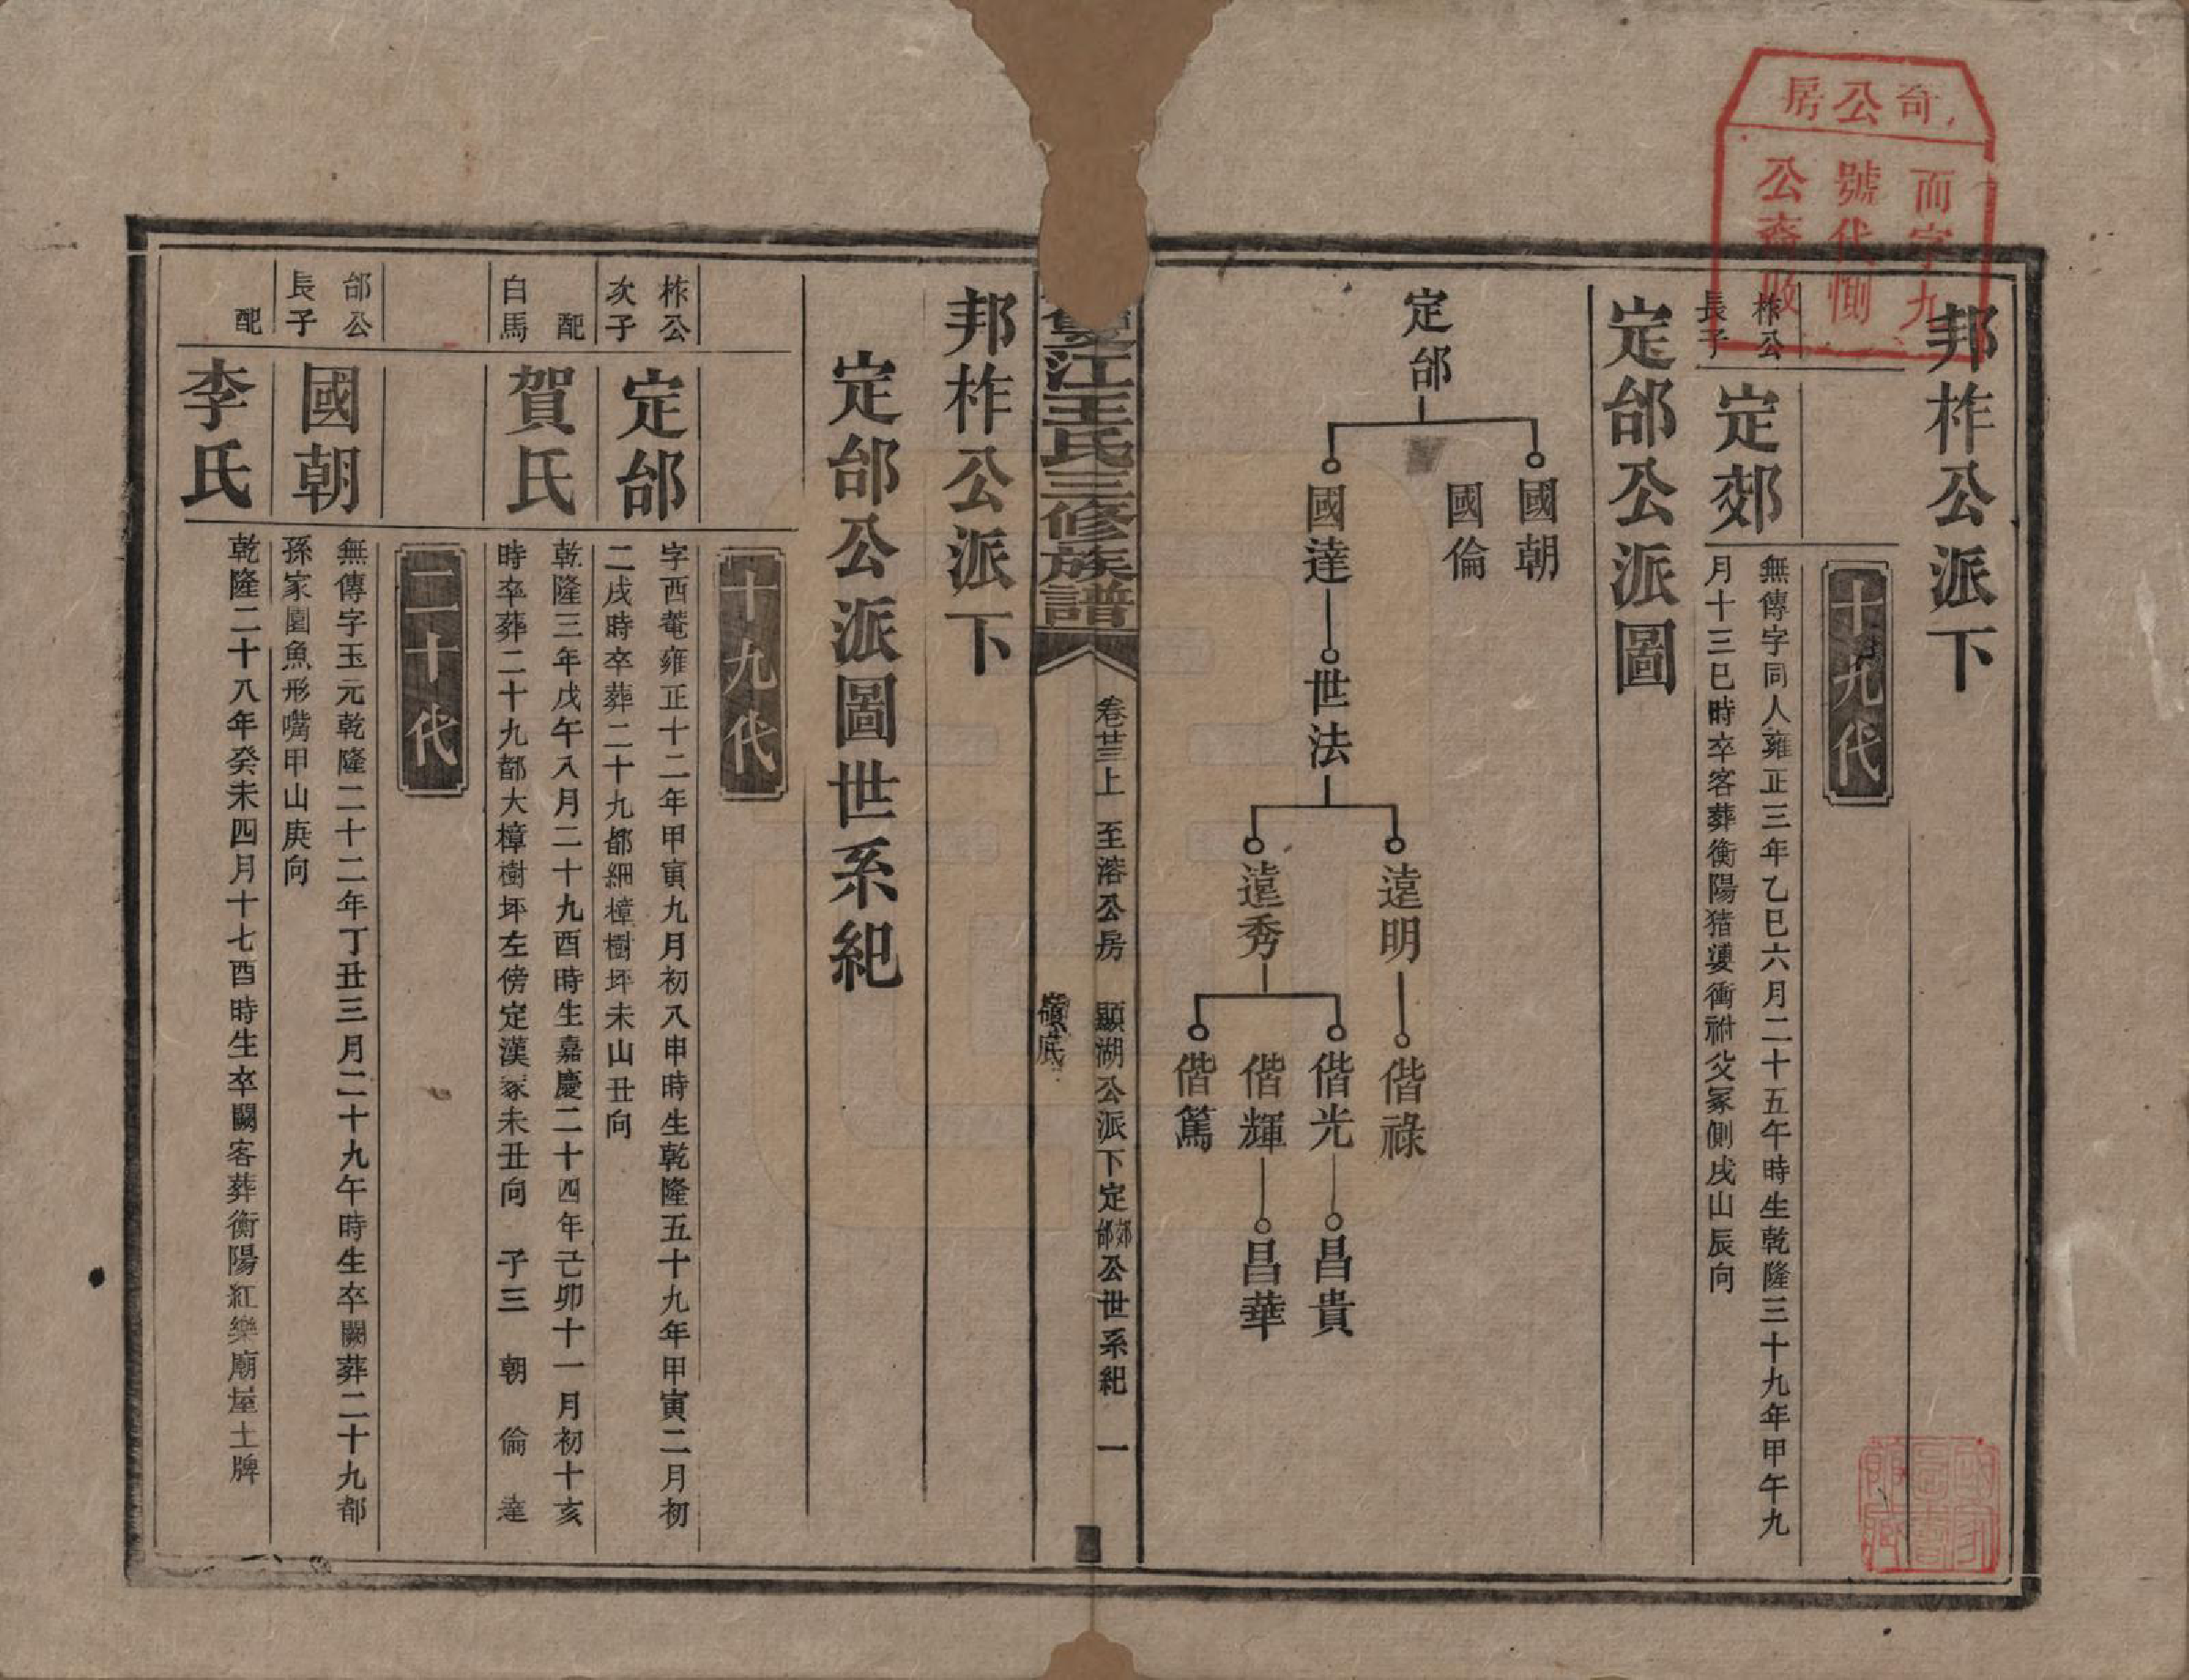 奇公房
而字九
號代惻
公裔收
邦柞公派下
十九代
柞公長子
定郊
無傳字同人雍正三年乙巳六月二十五午時生乾隆三十九年甲午九
月十三巳時卒客葬衡陽猪婆衝祔父冢側戌山辰向
定郃公派圖
定郃
國朝
國倫
國達
世法
遠明
遠秀
偕祿
偕光
偕輝
偕篤
昌貴
昌華
江王氏三修族譜
卷廿三上 至溶公房 顯湖公派下定郊郃公世系紀 一
嶺底
邦柞公派下
定郃公派圖世系紀
十九代
柞公次子
定郃
字西菴雍正十二年甲寅九月初八申時生乾隆五十九年甲寅二月初
二戌時卒葬二十九都細樟樹坪未山丑向
配白馬
賀氏
乾隆三年戊午八月二十九酉時生嘉慶二十四年己卯十一月初十亥
時卒葬二十九都大樟樹坪左傍定漢冢未丑向 子三 朝 倫 達
二十代
郃公長子
國朝
無傳字玉元乾隆二十二年丁丑三月二十九午時生卒闕葬二十九都
孫家園魚形嘴甲山庚向
配
李氏
乾隆二十八年癸未四月十七酉時生卒闕客葬衡陽紅樂廟屋土牌